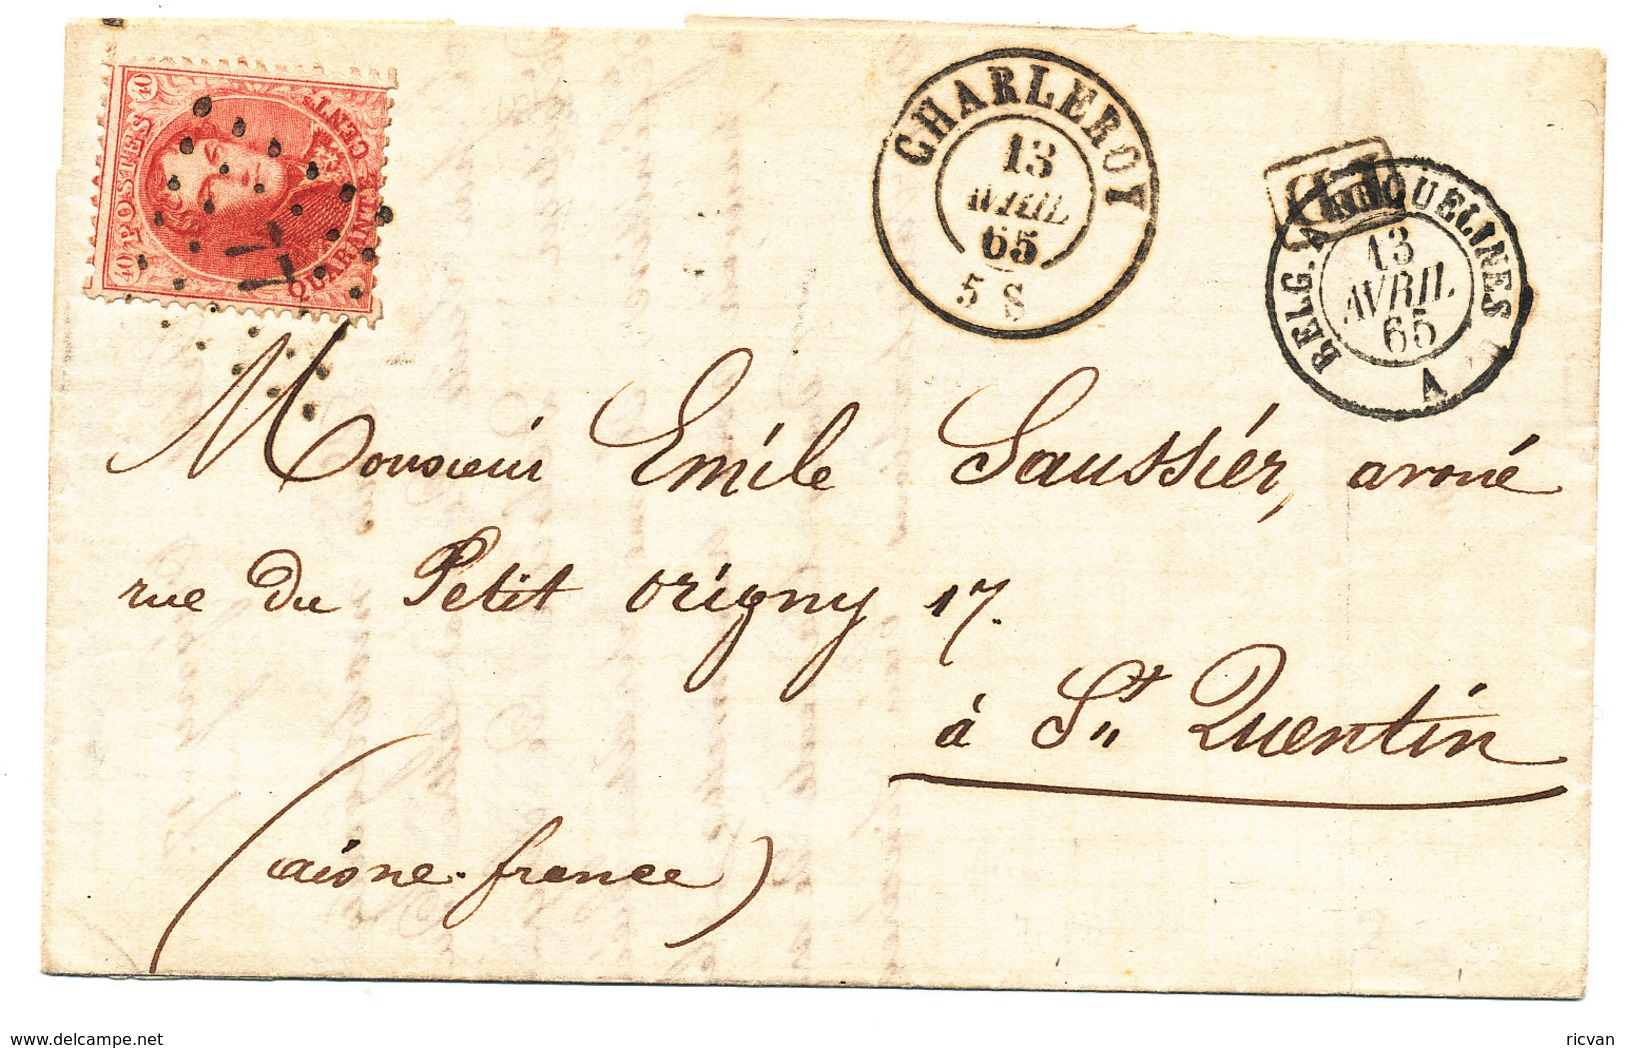 40
POSTES
40
QUARANTE CENT.s
CHARLEROY
13
AVRIL
65
5 S
PD
BELG. A ERQUELINES
13
AVRIL
65
A
Monsieur Emile Saussier, avoué
rue du Petit Origny 17.
à St Quentin
(aisne-france)
www.delcampe.net
ricvan